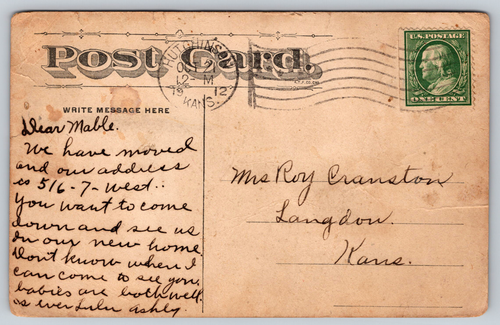 Post Card.
HUTCHINSON
12-M
12
KANS.
U.S. POSTAGE
ONE CENT
WRITE MESSAGE HERE
Dear Mable.
We have moved
and our address
is 516-7-West.
You want to come
down and see us
in our new home.
Don't know when I
can come to see you,
babies are both well.
as ever Lulu Ashly.
Mrs Roy Cranston
Langdon.
Kans.